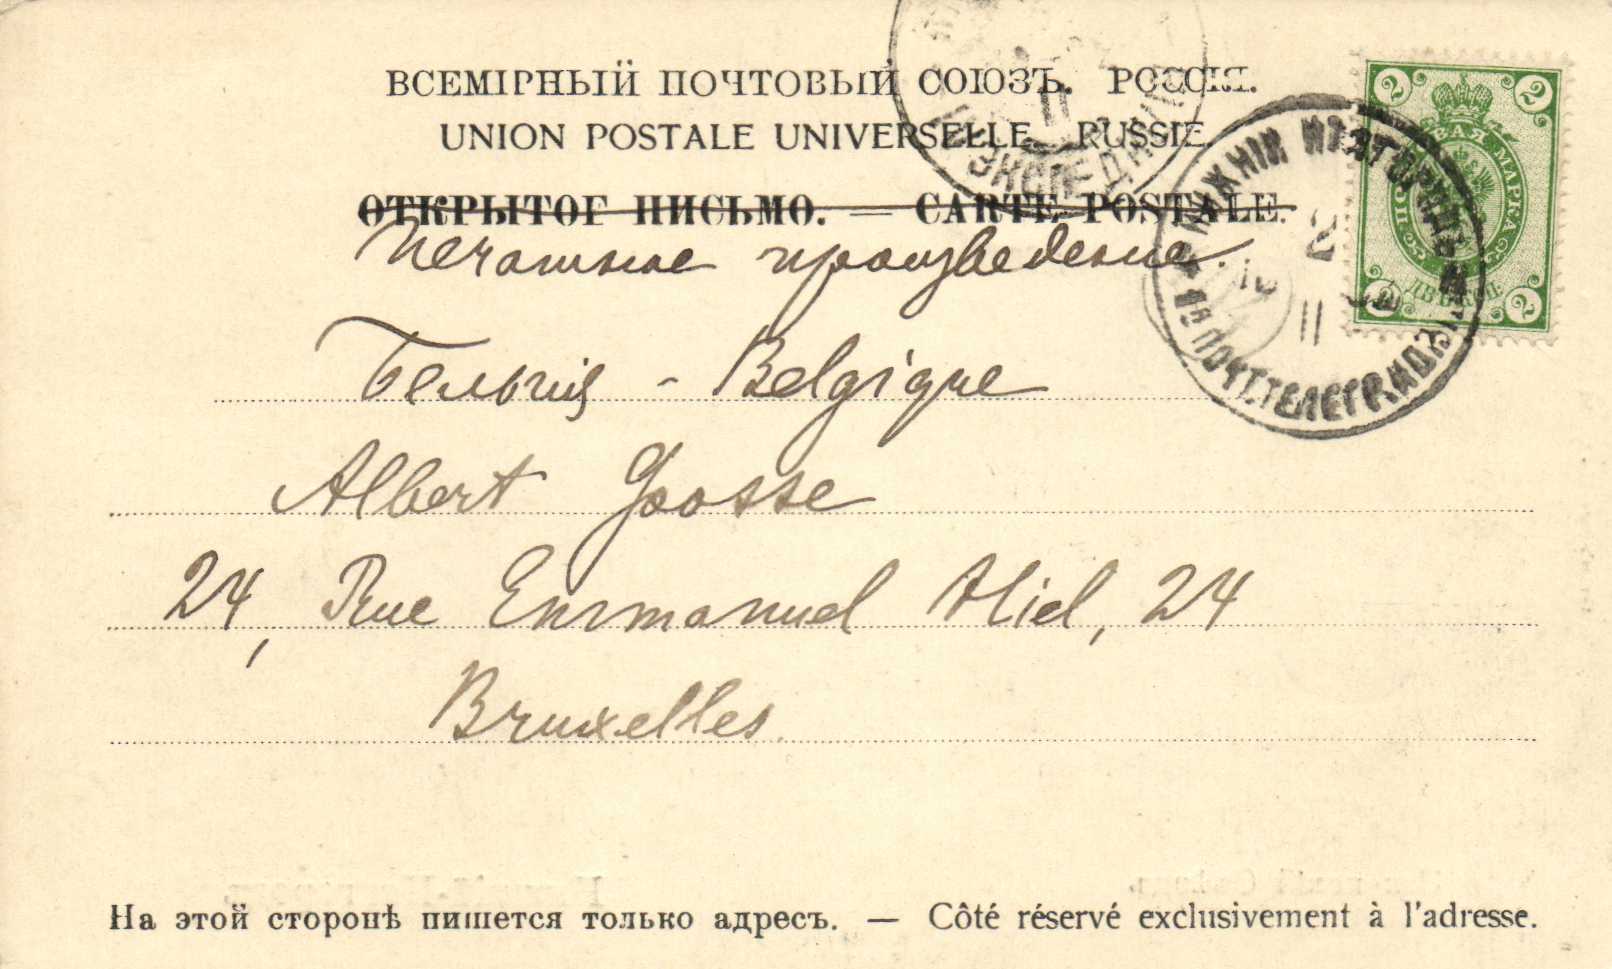 ВСЕМІРНЫЙ ПОЧТОВЫЙ СОЮЗЪ. РОССІЯ.
UNION POSTALE UNIVERSELLE. RUSSIE.
ОТКРЫТОЕ ПИСЬМО. — CARTE POSTALE.
Печатное произведение.
Бельгія - Belgique
Albert Goosse
24, Rue Emmanuel Hiel, 24
Bruxelles.
На этой сторонѣ пишется только адресъ. — Côté réservé exclusivement à l'adresse.
2 2
МАРКА
2 2
НИЖНІЙ НОВГОРОДЪ
ПОЧТ.ТЕЛЕГР.
2
II
ЭКСПЕДИЦІЯ
II